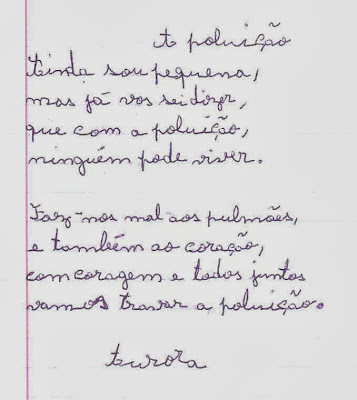 A poluição
Ainda sou pequena,
mas já vos sei dizer,
que com a poluição,
ninguém pode viver.
Faz-nos mal aos pulmões,
e também ao coração,
com coragem e todos juntos
vamos travar a poluição.
Aurora